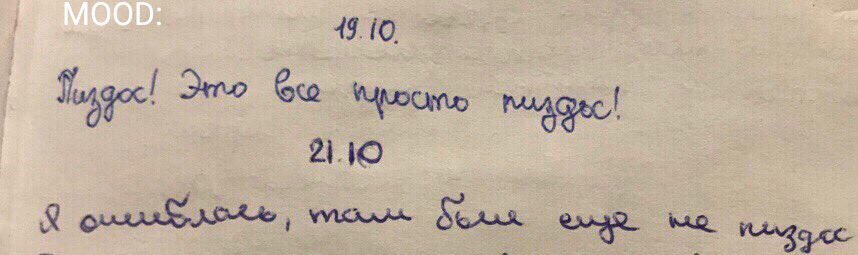 MOOD:
19.10.
Пиздос! Это все просто пиздос!
21.10
Я ошиблась, там был еще не пиздос